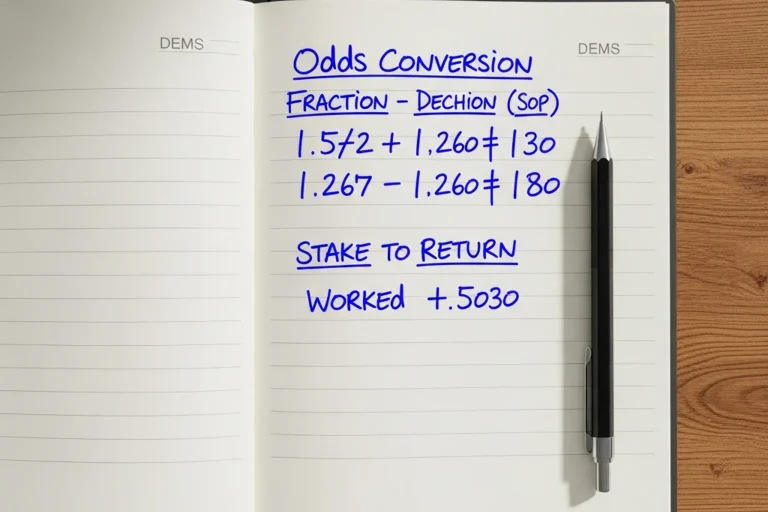 DEMS
DEMS
Odds CONVERSION
FRACTION – DECHION (SOP)
1.5/2 + 1,260 ‡ 130
1.267 – 1.260 ‡ 180
STAKE TO RETURN
WORKEd +.5030